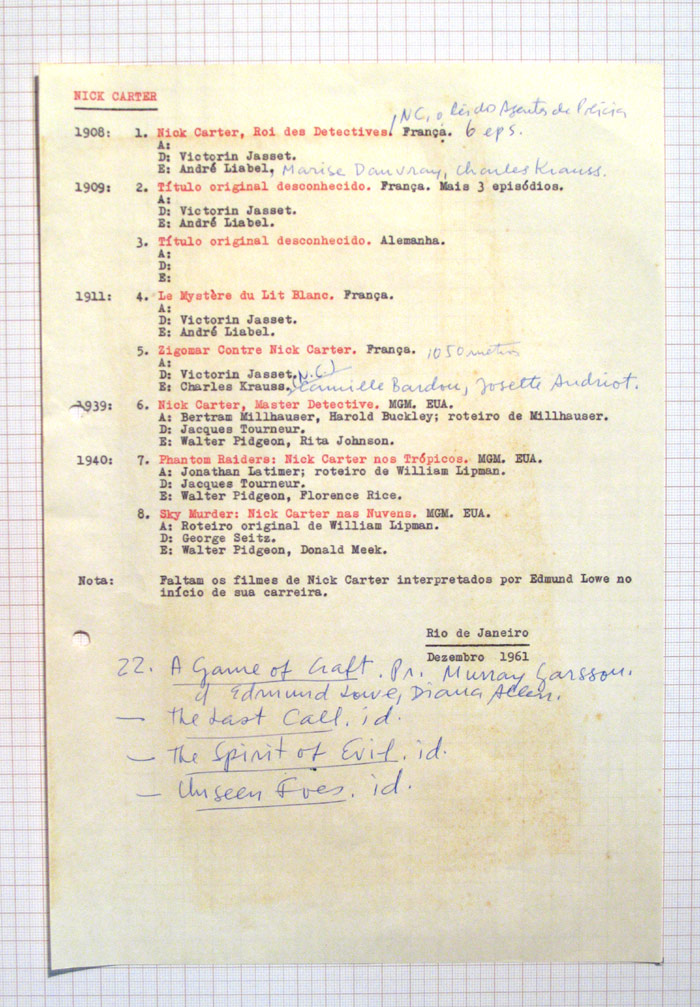 NICK CARTER
, NC, o Rei do Agentes de Polícia
1908: 1. Nick Carter, Roi des Detectives. França. 6 eps.
A:
D: Victorin Jasset.
E: André Liabel, Marise Dauvray, Charles Krauss.
1909: 2. Título original desconhecido. França. Mais 3 episódios.
A:
D: Victorin Jasset.
E: André Liabel.
3. Título original desconhecido. Alemanha.
A:
D:
E:
1911: 4. Le Mystère du Lit Blanc. França.
A:
D: Victorin Jasset.
E: André Liabel.
5. Zigomar Contre Nick Carter. França. 1050 metros
A:
D: Victorin Jasset.
(N.C.)
E: Charles Krauss. Camille Bardou, Josette Andriot.
1939: 6. Nick Carter, Master Detective. MGM. EUA.
A: Bertram Millhauser, Harold Buckley; roteiro de Millhauser.
D: Jacques Tourneur.
E: Walter Pidgeon, Rita Johnson.
1940: 7. Phantom Raiders: Nick Carter nos Trópicos. MGM. EUA.
A: Jonathan Latimer; roteiro de William Lipman.
D: Jacques Tourneur.
E: Walter Pidgeon, Florence Rice.
8. Sky Murder: Nick Carter nas Nuvens. MGM. EUA.
A: Roteiro original de William Lipman.
D: George Seitz.
E: Walter Pidgeon, Donald Meek.
Nota: Faltam os filmes de Nick Carter interpretados por Edmund Lowe no
início de sua carreira.
Rio de Janeiro
Dezembro 1961
22. A Game of Craft. Pr. Murray Garsson.
Edmund Lowe, Diana Allen.
— The Last Call. id.
— The Spirit of Evil. id.
— Unseen Foes. id.